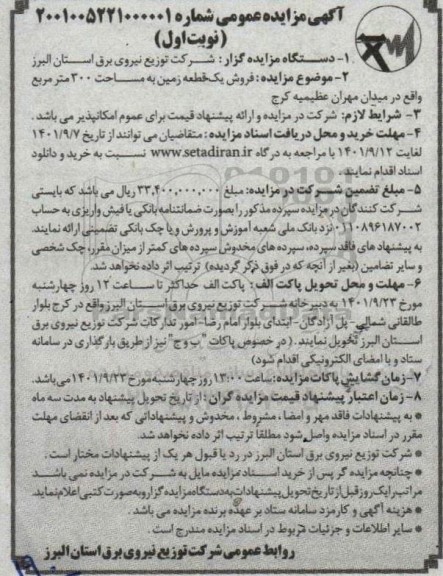 آگهی مزایده عمومی شماره ۲۰۰۱۰۰۵۲۲۱۰۰۰۰۰۱
(نوبت اول)
۱- دستگاه مزایده گزار: شرکت توزیع نیروی برق استان البرز
۲- موضوع مزایده: فروش یک قطعه زمین به مساحت ۳۰۰ متر مربع
واقع در میدان مهران عظیمیه کرج
۳- شرایط لازم: شرکت در مزایده و ارائه پیشنهاد قیمت برای عموم امکانپذیر می باشد.
۴- مهلت خرید و محل دریافت اسناد مزایده: متقاضیان می توانند از تاریخ ۱۴۰۱/۹/۷
لغایت ۱۴۰۱/۹/۱۲ با مراجعه به درگاه www.setadiran.ir نسبت به خرید و دانلود
اسناد اقدام نمایند.
۵- مبلغ تضمین شرکت در مزایده: مبلغ ۳۳,۴۰۰,۰۰۰,۰۰۰ ریال می باشد که بایستی
شرکت کنندگان در مزایده سپرده مذکور را بصورت ضمانتنامه بانکی یا فیش واریزی به حساب
۰۱۱۰۸۹۶۱۸۷۰۰۲ نزد بانک ملی شعبه آموزش و پرورش و یا چک بانکی تضمینی ارائه نمایند.
به پیشنهاد های فاقد سپرده، سپرده های مخدوش سپرده های کمتر از میزان مقرر، چک شخصی
و سایر تضامین (بغیر از آنچه که در فوق ذکر گردیده) ترتیب اثر داده نخواهد شد.
۶- مهلت و محل تحویل پاکت الف: پاکت الف حداکثر تا ساعت ۱۲ روز چهارشنبه
مورخ ۱۴۰۱/۹/۲۳ به دبیرخانه شرکت توزیع نیروی برق استان البرز واقع در کرج بلوار
طالقانی شمالی- پل آزادگان- ابتدای بلوار امام رضا- امور تدارکات شرکت توزیع نیروی برق
استان البرز تحویل نمایند. (در خصوص پاکات "ب و ج" نیز از طریق بارگذاری در سامانه
ستاد و با امضای الکترونیکی اقدام شود)
۷- زمان گشایش پاکات مزایده: ساعت ۱۳:۰۰ روز چهارشنبه مورخ ۱۴۰۱/۹/۲۳ می باشد.
۸- زمان اعتبار پیشنهاد قیمت مزایده گران: از تاریخ تحویل پیشنهاد به مدت سه ماه
* به پیشنهادات فاقد مهر و امضا، مشروط، مخدوش و پیشنهاداتی که بعد از انقضای مهلت
مقرر در اسناد مزایده واصل شود مطلقا ترتیب اثر داده نخواهد شد.
* شرکت توزیع نیروی برق استان البرز در رد یا قبول هر یک از پیشنهادات مختار است.
* چنانچه مزایده گر پس از خرید اسناد مزایده مایل به شرکت در مزایده نمی باشد
مراتب را یک روز قبل از تاریخ تحویل پیشنهادات به دستگاه مزایده گزار و به صورت کتبی اعلام نماید.
* هزینه آگهی و کارمزد سامانه ستاد بر عهده برنده مزایده می باشد.
* سایر اطلاعات و جزئیات مربوط در اسناد مزایده مندرج است
روابط عمومی شرکت توزیع نیروی برق استان البرز